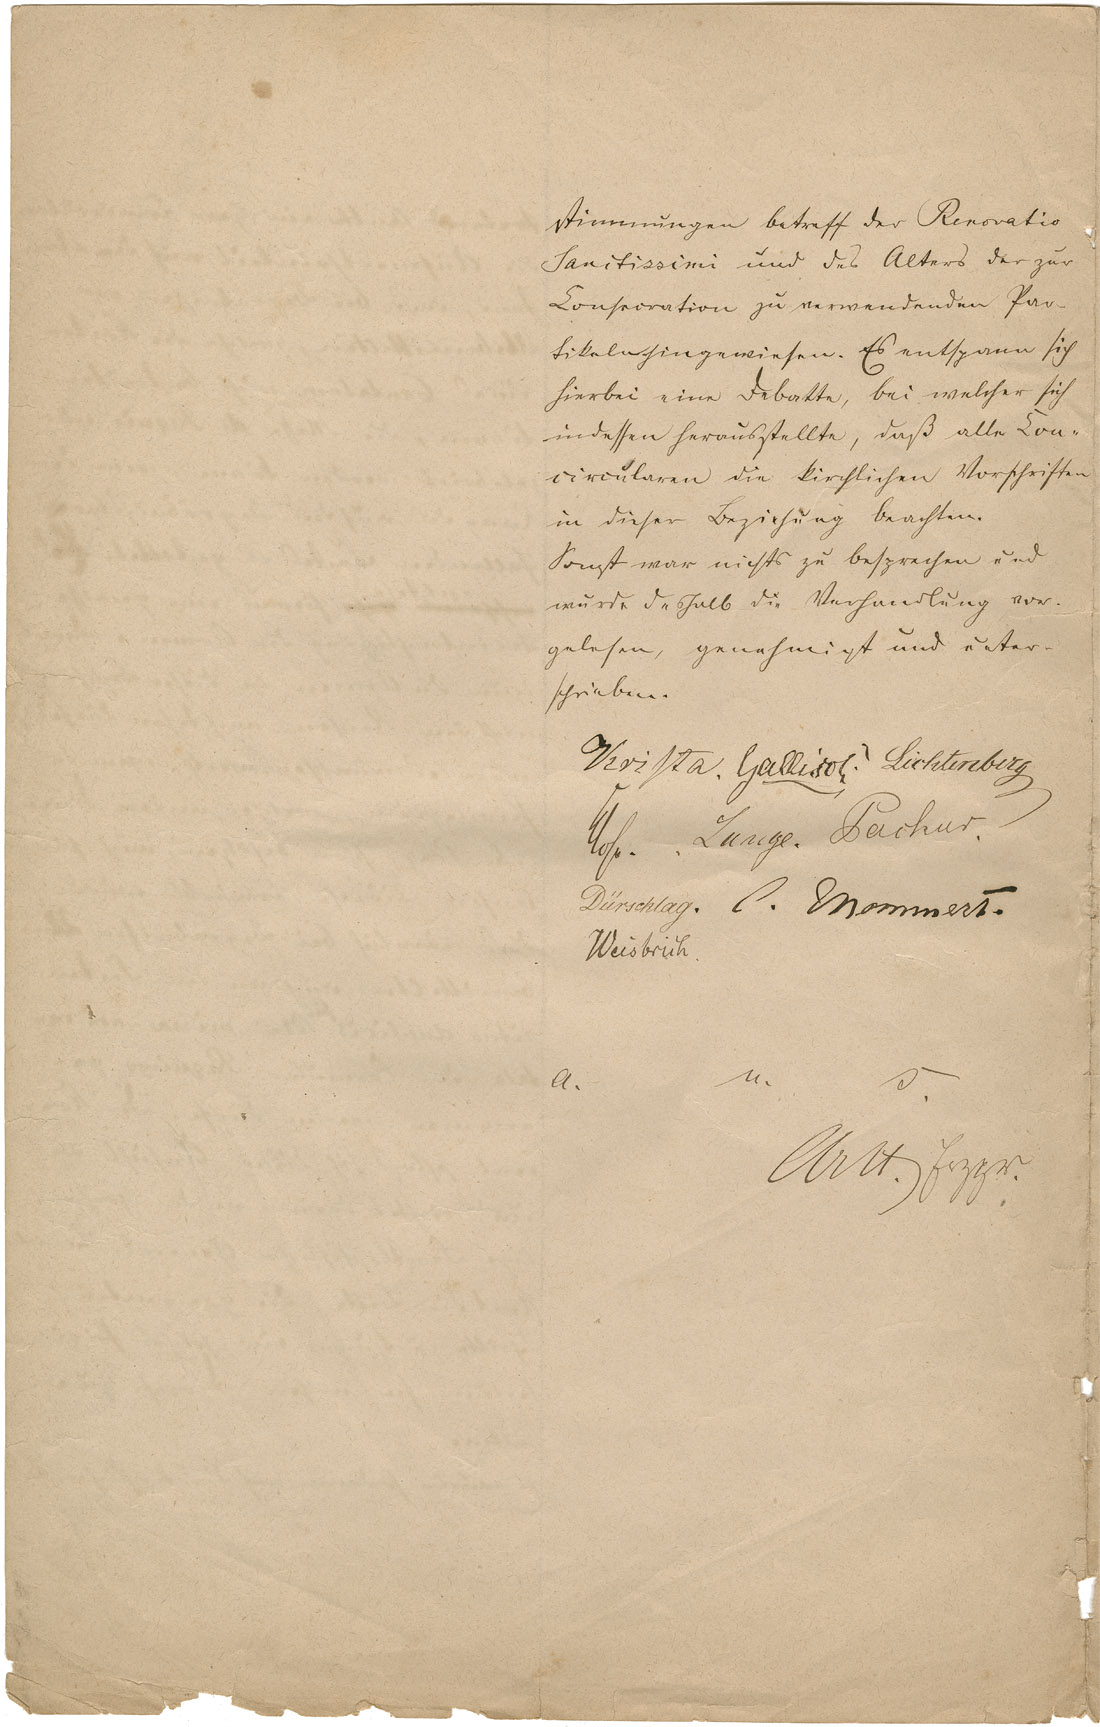 stimmungen betreff der Renovatio
Sanctissimi und des Alters der zur
Consecration zu verwendenden Par-
tikeln hingewiesen. Es entspann sich
hierbei eine Debatte, bei welcher sich
indessen herausstellte, daß alle Con-
circularen die kirchlichen Vorschriften
in dieser Beziehung beachten.
Sonst war nichts zu besprechen und
wurde deshalb die Verhandlung vor-
gelesen, genehmigt und unter-
schrieben.
Krista. Lichtenberg
Lange. Pachur.
Dürschlag. C. Mommert.
Weisbrich.
a. u. s.
Arlt. Erzpr.